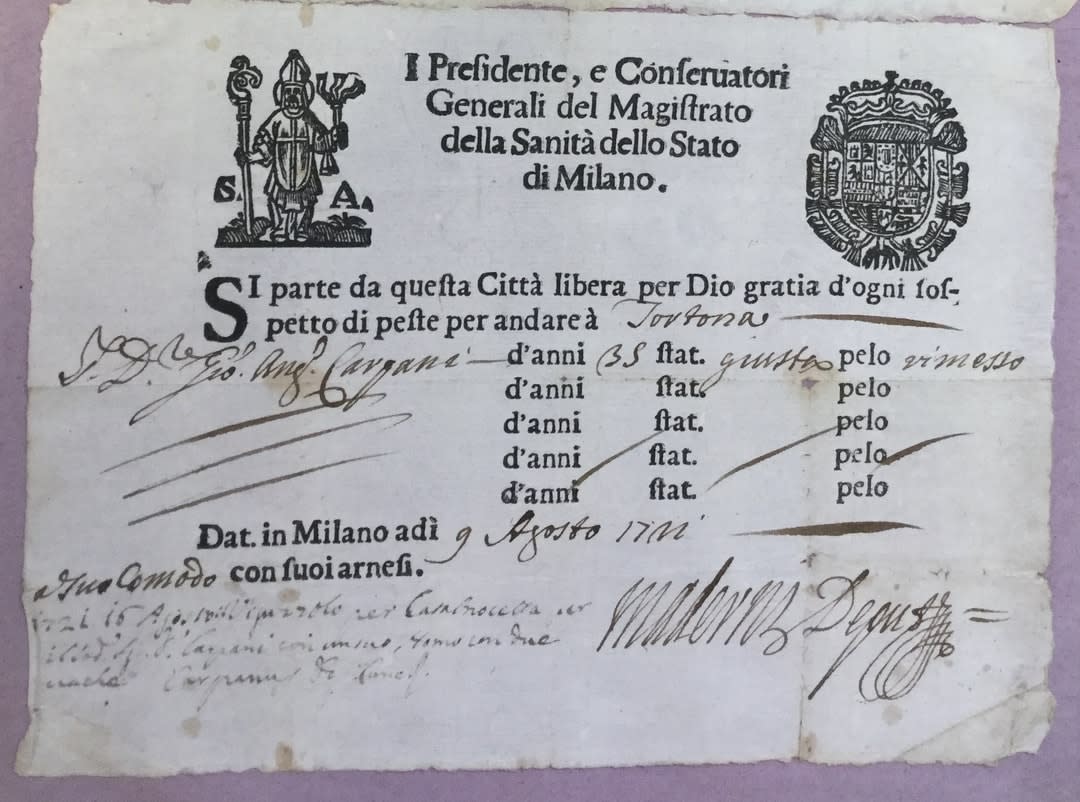 I Preſidente, e Conſeruatori
Generali del Magiſtrato
della Sanità dello Stato
di Milano.
S. A.
SI parte da queſta Città libera per Dio gratia d'ogni ſoſ-
petto di peſte per andare à Tortona
Gio. Ang. Carpani d'anni 35 ſtat. giusta pelo rimesso
d'anni ſtat. pelo
d'anni ſtat. pelo
d'anni ſtat. pelo
d'anni ſtat. pelo
Dat. in Milano adì 9 Agosto 1721
a suo Comodo con ſuoi arneſi.
1721 16 Ago. per
con due